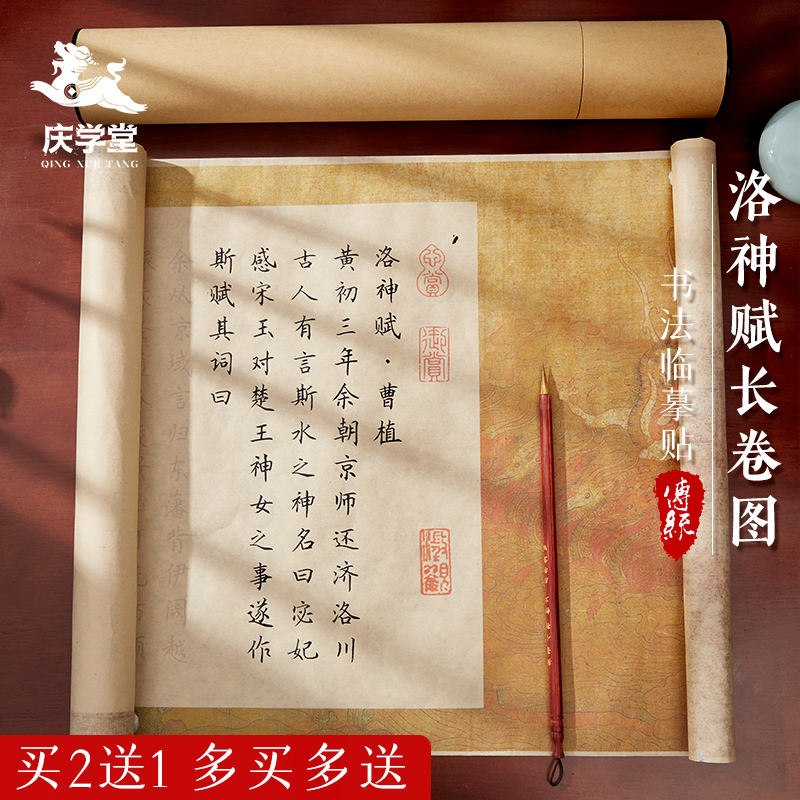 庆学堂
QING XUE TANG
洛神赋长卷图
书法临摹贴
傳統
洛神赋·曹植
黄初三年余朝京师还济洛川
古人有言斯水之神名曰宓妃
感宋玉对楚王神女之事遂作
斯赋其词曰
余从京域言归东藩背伊阙越
御賞
买2送1 多买多送